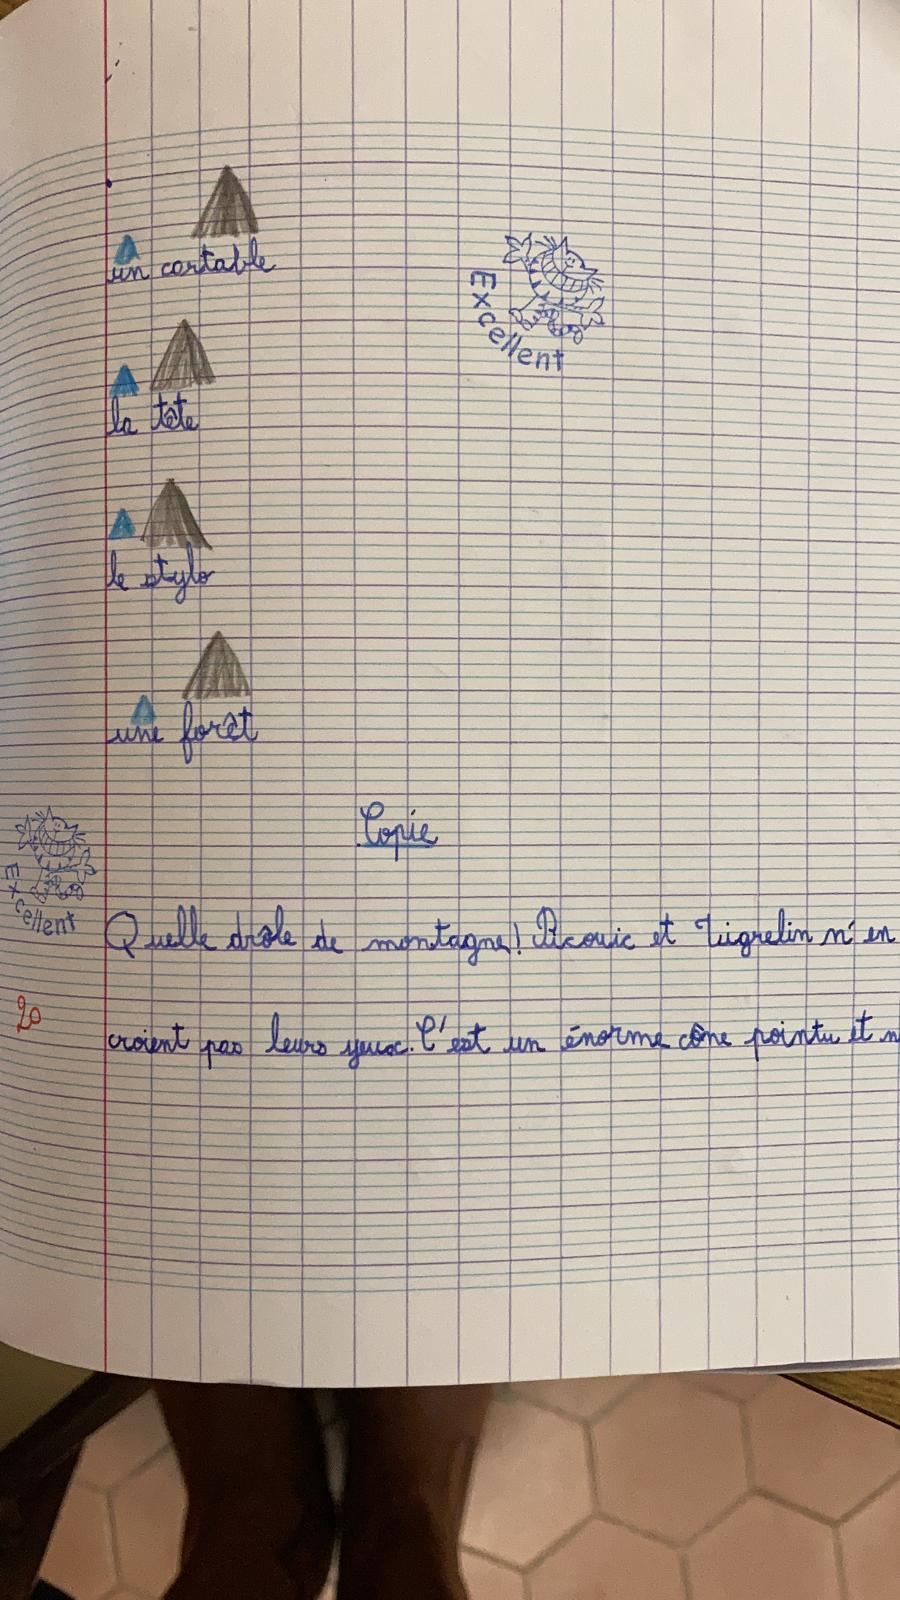 un cartable
Excellent
la tête
le stylo
une forêt
Copie
Excellent
Quelle drôle de montagne! Picouic et Tigrelin n'en
20
croient pas leurs yeux. C'est un énorme cône pointu et